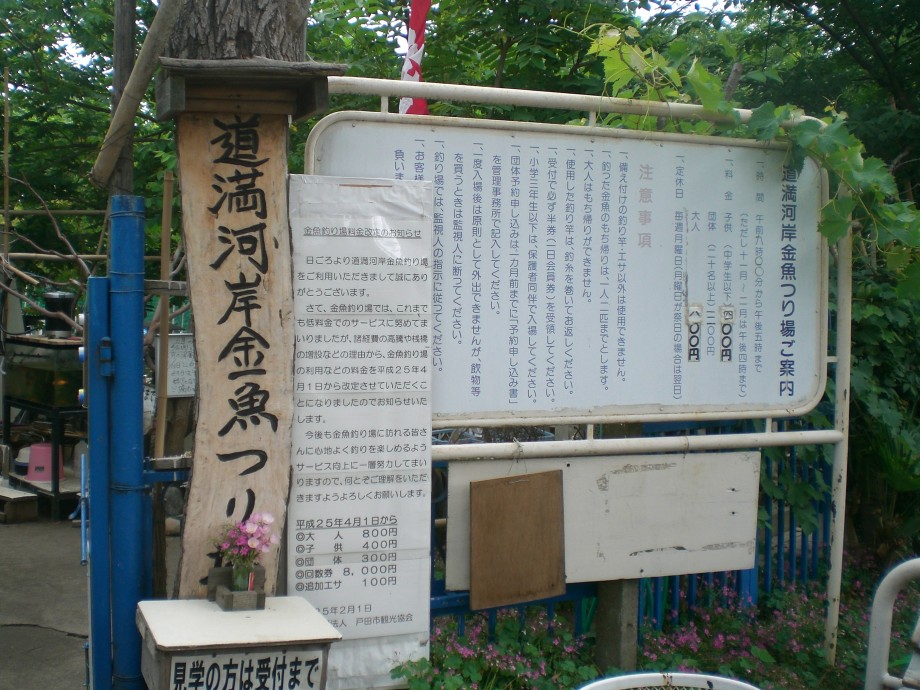 道満河岸金魚つり
金魚釣り場料金改定のお知らせ
日ごろより道満河岸金魚釣り場
をご利用いただきまして誠にあり
がとうございます。
さて、釣り場では、これまで
も低料金でのサービスに努めてま
いりましたが、諸経費の高騰や桟橋
の増設などの理由から、金魚釣り場
の利用などの料金を平成25年4
月1日から改定させていただくこ
とになりましたのでお知らせいた
します。
今後も金魚釣り場に訪れる皆さ
んに心地よく釣りを楽しめるよう
サービス向上に一層努力してまい
りますので、何とぞご理解をいただ
きますようよろしくお願いします。
平成25年4月1日から
◎大人 800円
◎子供 400円
◎団体 300円
◎回数券 8,000円
◎追加エサ 100円
25年2月1日
法人 戸田市観光協会
見学の方は受付まで
道満河岸金魚つり場ご案内
一、時間 午前九時〇〇分から午後五時まで
(ただし十一月〜二月は午後四時まで)
一、料金 子供(中学生以下)四〇〇円
団体(二十名以上)三〇〇円
大人 八〇〇円
一、定休日 毎週月曜日(月曜日が祭日の場合は翌日)
注意事項
一、備え付けの釣り竿・エサ以外は使用できません。
一、釣った金魚のもち帰りは、一人二匹までとします。
一、大人はもち帰りができません。
一、使用した釣り竿は、釣糸を巻いてお返しください。
一、受付で必ず半券(一日会員券)を受領してください。
一、小学三年生以下は、保護者同伴で入場してください。
一、団体予約申し込みは一カ月前までに「予約申し込み書」
を管理事務所で記入してください。
一、一度入場後は原則として外出できませんが、飲物等
を買うときは監視人に断ってください。
一、釣り場では、監視人の指示に従ってください。
一、お客様
負いま